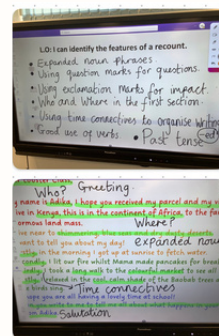 L.O: I can identify the features of a recount.
• Expanded noun phrases.
• Using question marks for questions.
• Using exclamation marks for impact.
• Who and Where in the first section.
• Using time connectives to organise writing
• Good use of verbs • Past tense (-ed)
Who? Greeting
y name is Adika, I hope you received my parcel and my v
ive in Kenya, this is in the continent of Africa, to the fa
ormous land mass. Where?
ive near to shimmering, blue seas and dry dusty deserts.
want to tell you about my day! expanded nou
in the morning I got up at sunrise to fetch water.
I lit our fire whilst Mama made pancakes for break
I took a long walk to the colourful market to see all
I relaxed in the cool, calm shade of the Baobab trees
a birds sing. Time connectives
ope you are all having a lovely time at school!
om Adika Salutation